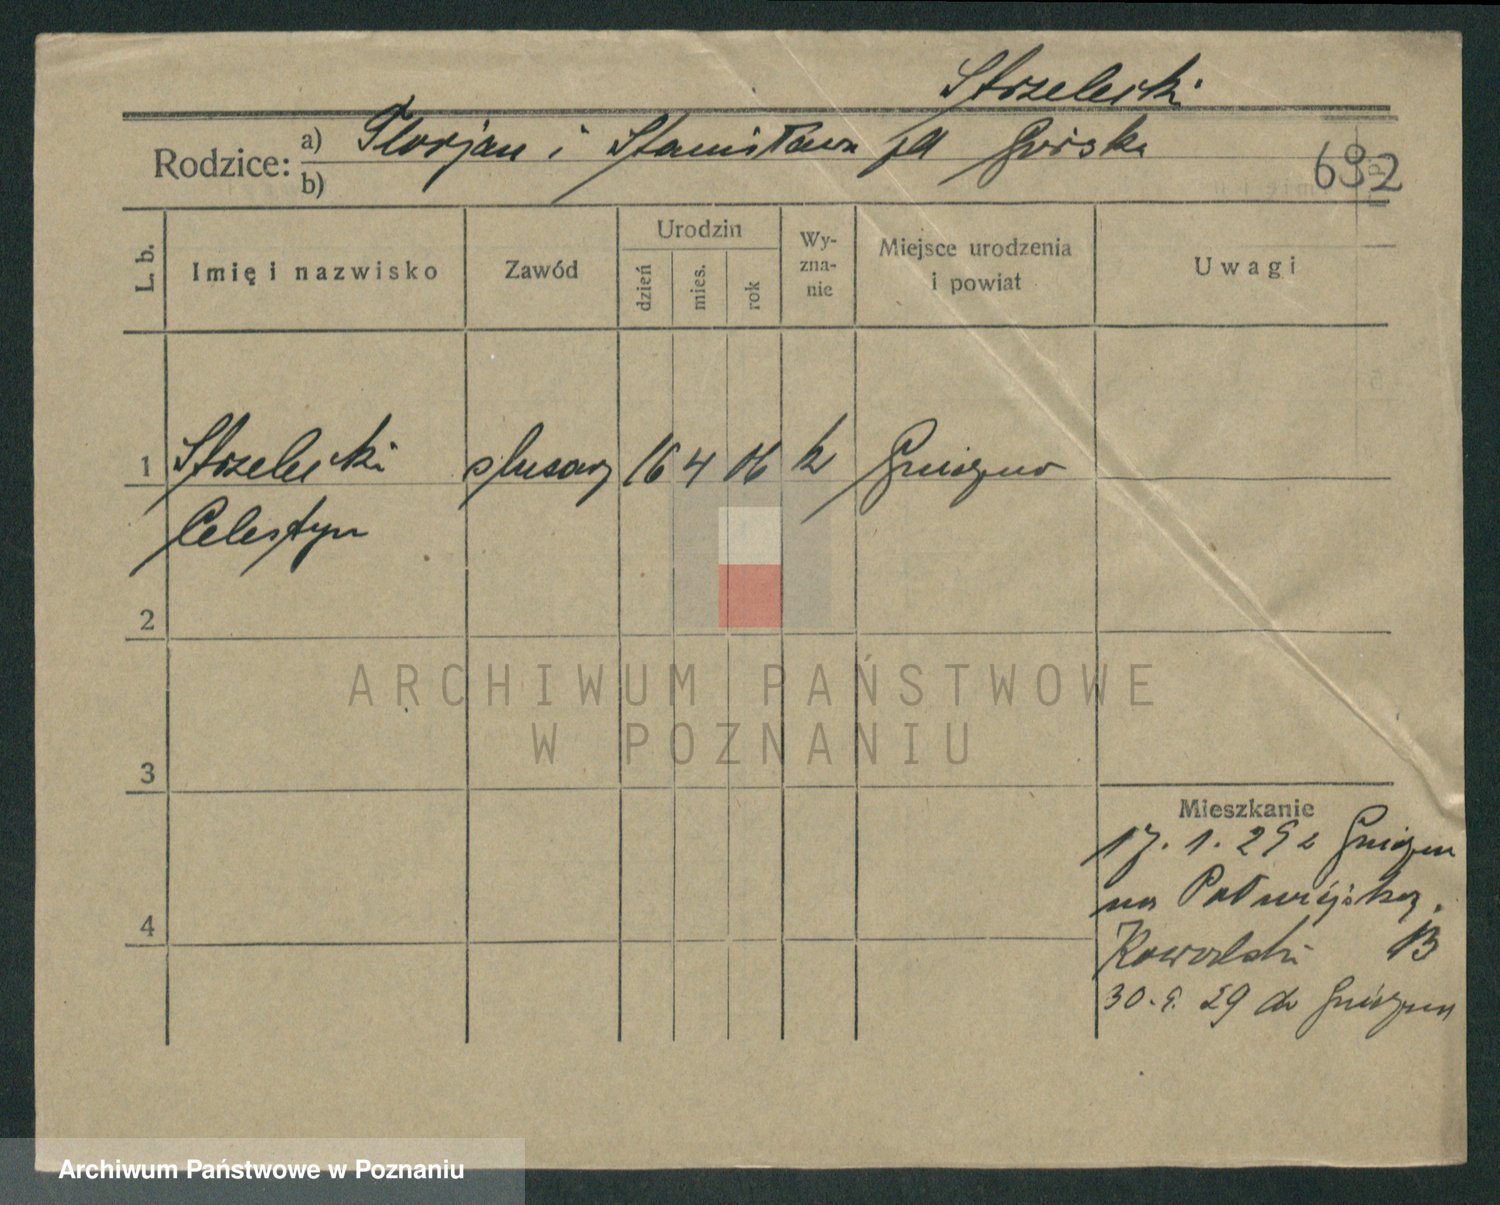 Strzelecki
Rodzice: a) Florjan i Stanisława Górska
b)
692
L. b.
Imię i nazwisko
Zawód
Urodzin
dzień
mies.
rok
Wy-
zna-
nie
Miejsce urodzenia
i powiat
Uwagi
1 Strzelecki ślusarz 16 4 06 k Gniezno
Celestyn
2
3
4
Mieszkanie
17. 1. 29 z Gniezna
na
Kowalski B
30. 9. 29 do Gniezna
ARCHIWUM PAŃSTWOWE
W POZNANIU
Archiwum Państwowe w Poznaniu